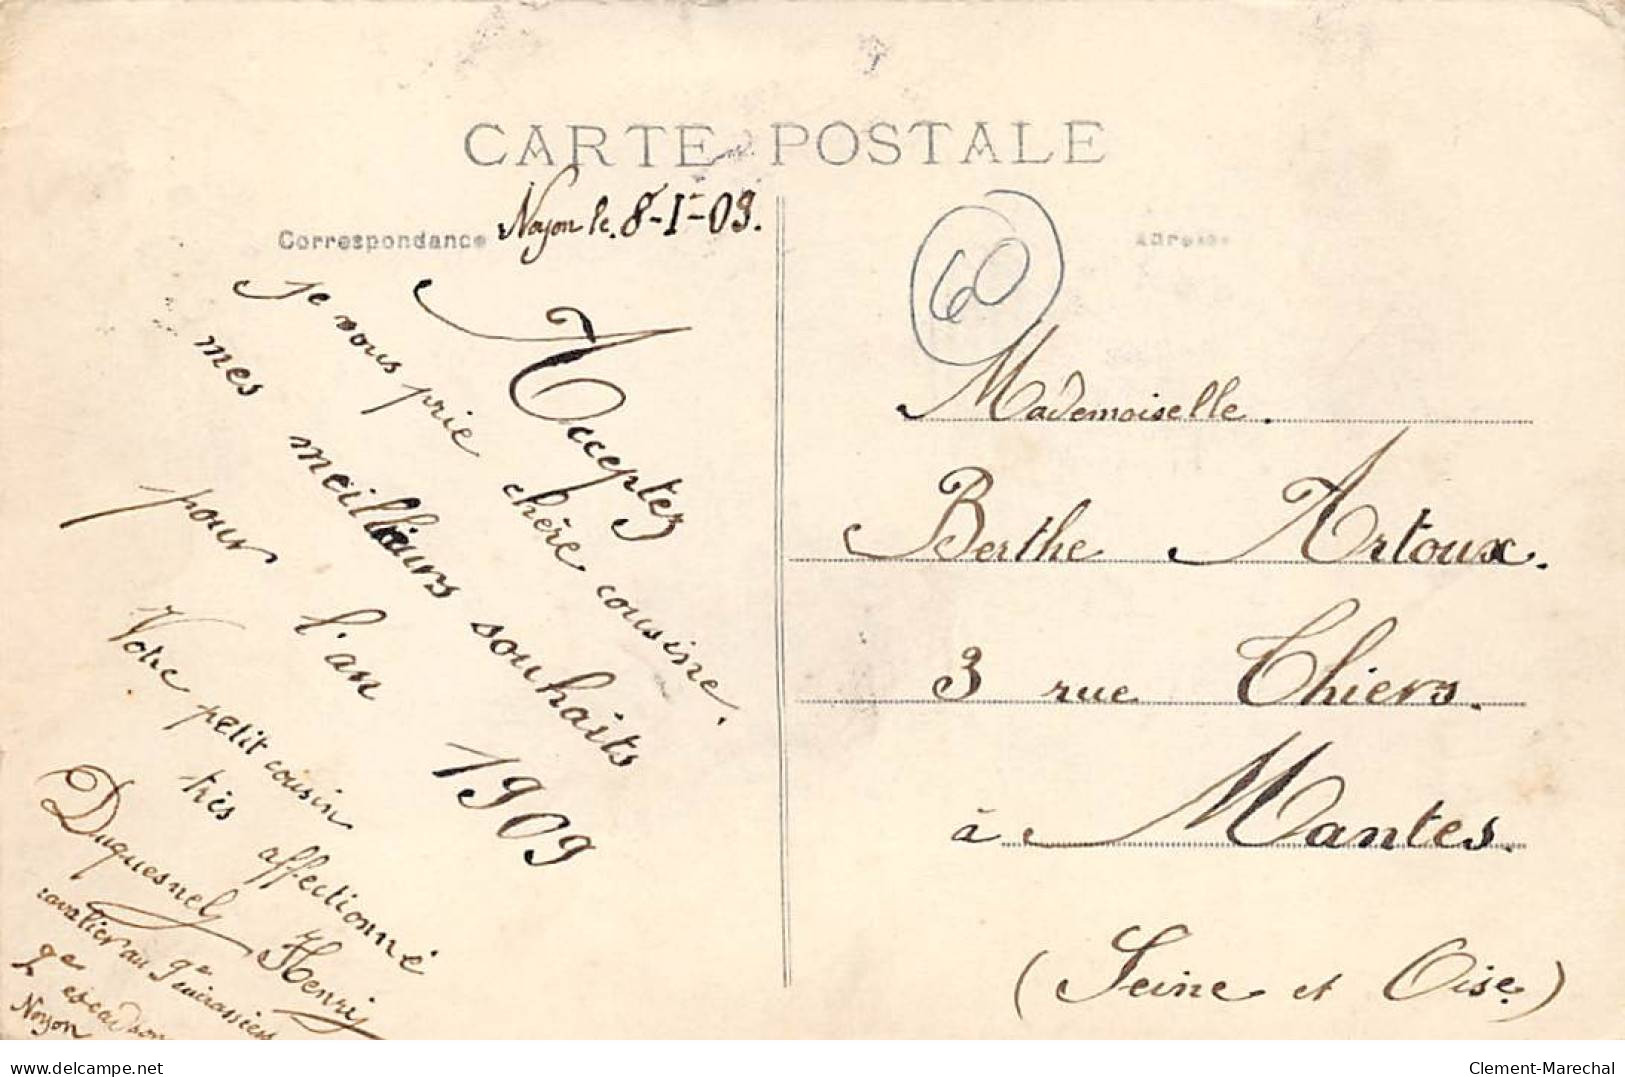 CARTE POSTALE
Correspondance
Noyon le. 8-1-09.
Adresse
60
Acceptez
je vous prie chère cousine.
mes meilleurs souhaits
pour l'an 1909
Votre petit cousin
très affectionné
Duquesnel Henri
cavalier au 9e cuirassiers
2e escadron
Noyon
Mademoiselle.
Berthe Artoux.
3 rue Thiers.
à Mantes.
(Seine et Oise.)
delcampe.net
Clement-Marechal